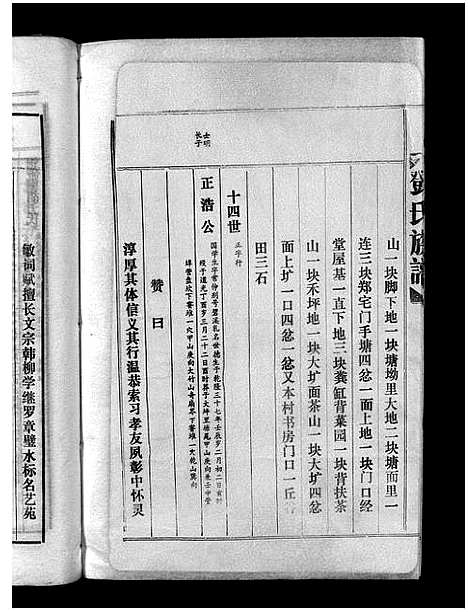 鄧氏族譜
山一块脚下地一块塘坳里大地二块塘而里一
连三块郑宅门手塘四忿一面上地一块门口经
堂屋基一直下地三块粪缸背菜园一块背扶茶
山一块禾坪地一块大圹面茶山一块大圹四忿
面上圹一口四忿一忿又本村书房门口一丘
田三石
十四世
正字行
士明
长子
正浩公
赞曰
淳厚其体信义其行温恭索习孝友夙彰中怀灵
敏词赋擅长文宗韩柳学继罗章璧水标名艺苑